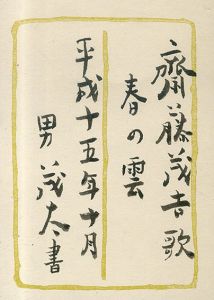 齋藤茂吉歌
春の雲
平成十五年十月
男 茂太書